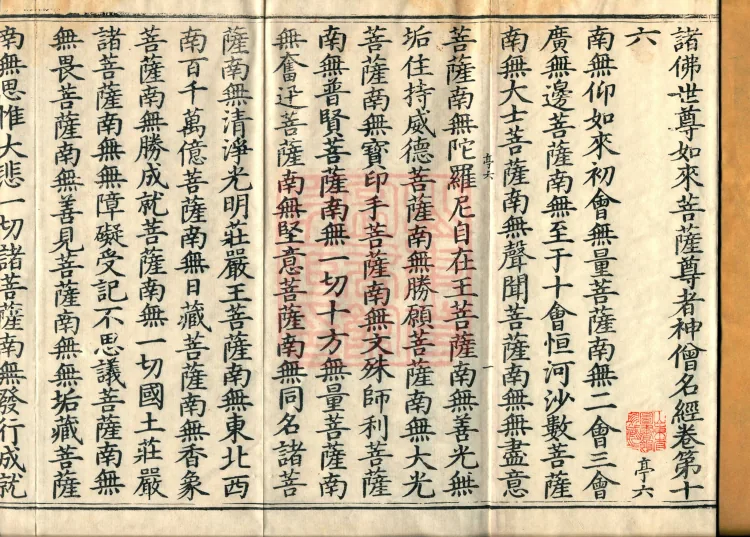 諸佛世尊如來菩薩尊者神僧名經卷第十
六
亭六
南無仰如來初會無量菩薩南無二會三會
廣無邊菩薩南無至于十會恒河沙數菩薩
南無大士菩薩南無聲聞菩薩南無無盡意
亭六
一
菩薩南無陀羅尼自在王菩薩南無善光無
垢住持威德菩薩南無勝願菩薩南無大光
菩薩南無寶印手菩薩南無文殊師利菩薩
南無普賢菩薩南無一切十方無量菩薩南
無奮迅菩薩南無堅意菩薩南無同名諸菩
薩南無清淨光明莊嚴王菩薩南無東北西
南百千萬億菩薩南無日藏菩薩南無香象
菩薩南無勝成就菩薩南無一切國土莊嚴
諸菩薩南無無障礙受記不思議菩薩南無
無畏菩薩南無善見菩薩南無無垢藏菩薩
南無思惟大悲一切諸菩薩南無發行成就